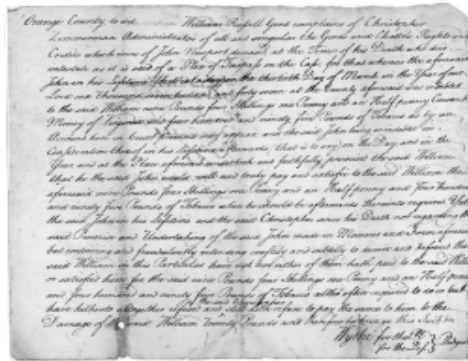 Orange County, to wit William Russell Gent complains of Christopher
Zimmerman Administrator of all and singular the Goods and Chattles Rights and
Credits which were of John Newport deceased at the Time of his Death who died
intestate as it is said of a Plea of Trespass on the Case for that whereas the aforesaid
John in his Lifetime the thirtieth Day of March in the Year of our
Lord one Thousand seven hundred and forty seven at the County aforesaid was indebted
to the said William nine Pounds four Shillings one Penny and an Half penny Current
Money of Virginia and four hundred and ninety five Pounds of Tobacco as by an
Account here in Court may appear and the said John being so indebted in
Consideration thereof in his Lifetime afterwards, that is to say on the Day, and in the
Year and at the Place aforesaid undertook and faithfully promised the said William
that he the said John would well and truly pay and satisfie to the said William the
aforesaid nine Pounds four Shillings one Penny and an Half penny and four hundred
and ninety five Pounds of Tobacco when he should be afterwards thereunto required Yet
the said John in his lifetime and the said Christopher since his Death not regarding the
said Promise and Undertaking of the said John made in Manner and Form aforesaid
but contriving and fraudulently intending craftily and subtilly to deceive and defraud the
said William in this Particular have not nor hath either of them paid to the said William
or satisfied him for the said nine Pounds four Shillings one Penny and an Half penny
and four hundred and ninety five Pounds of Tobacco altho often required so to do but
have hitherto altogether refused and still doth refuse to pay the same to him to the
Damage of the said William Twenty Pounds and therefore he brings this Suit
Wythe for the Plf
for the Def